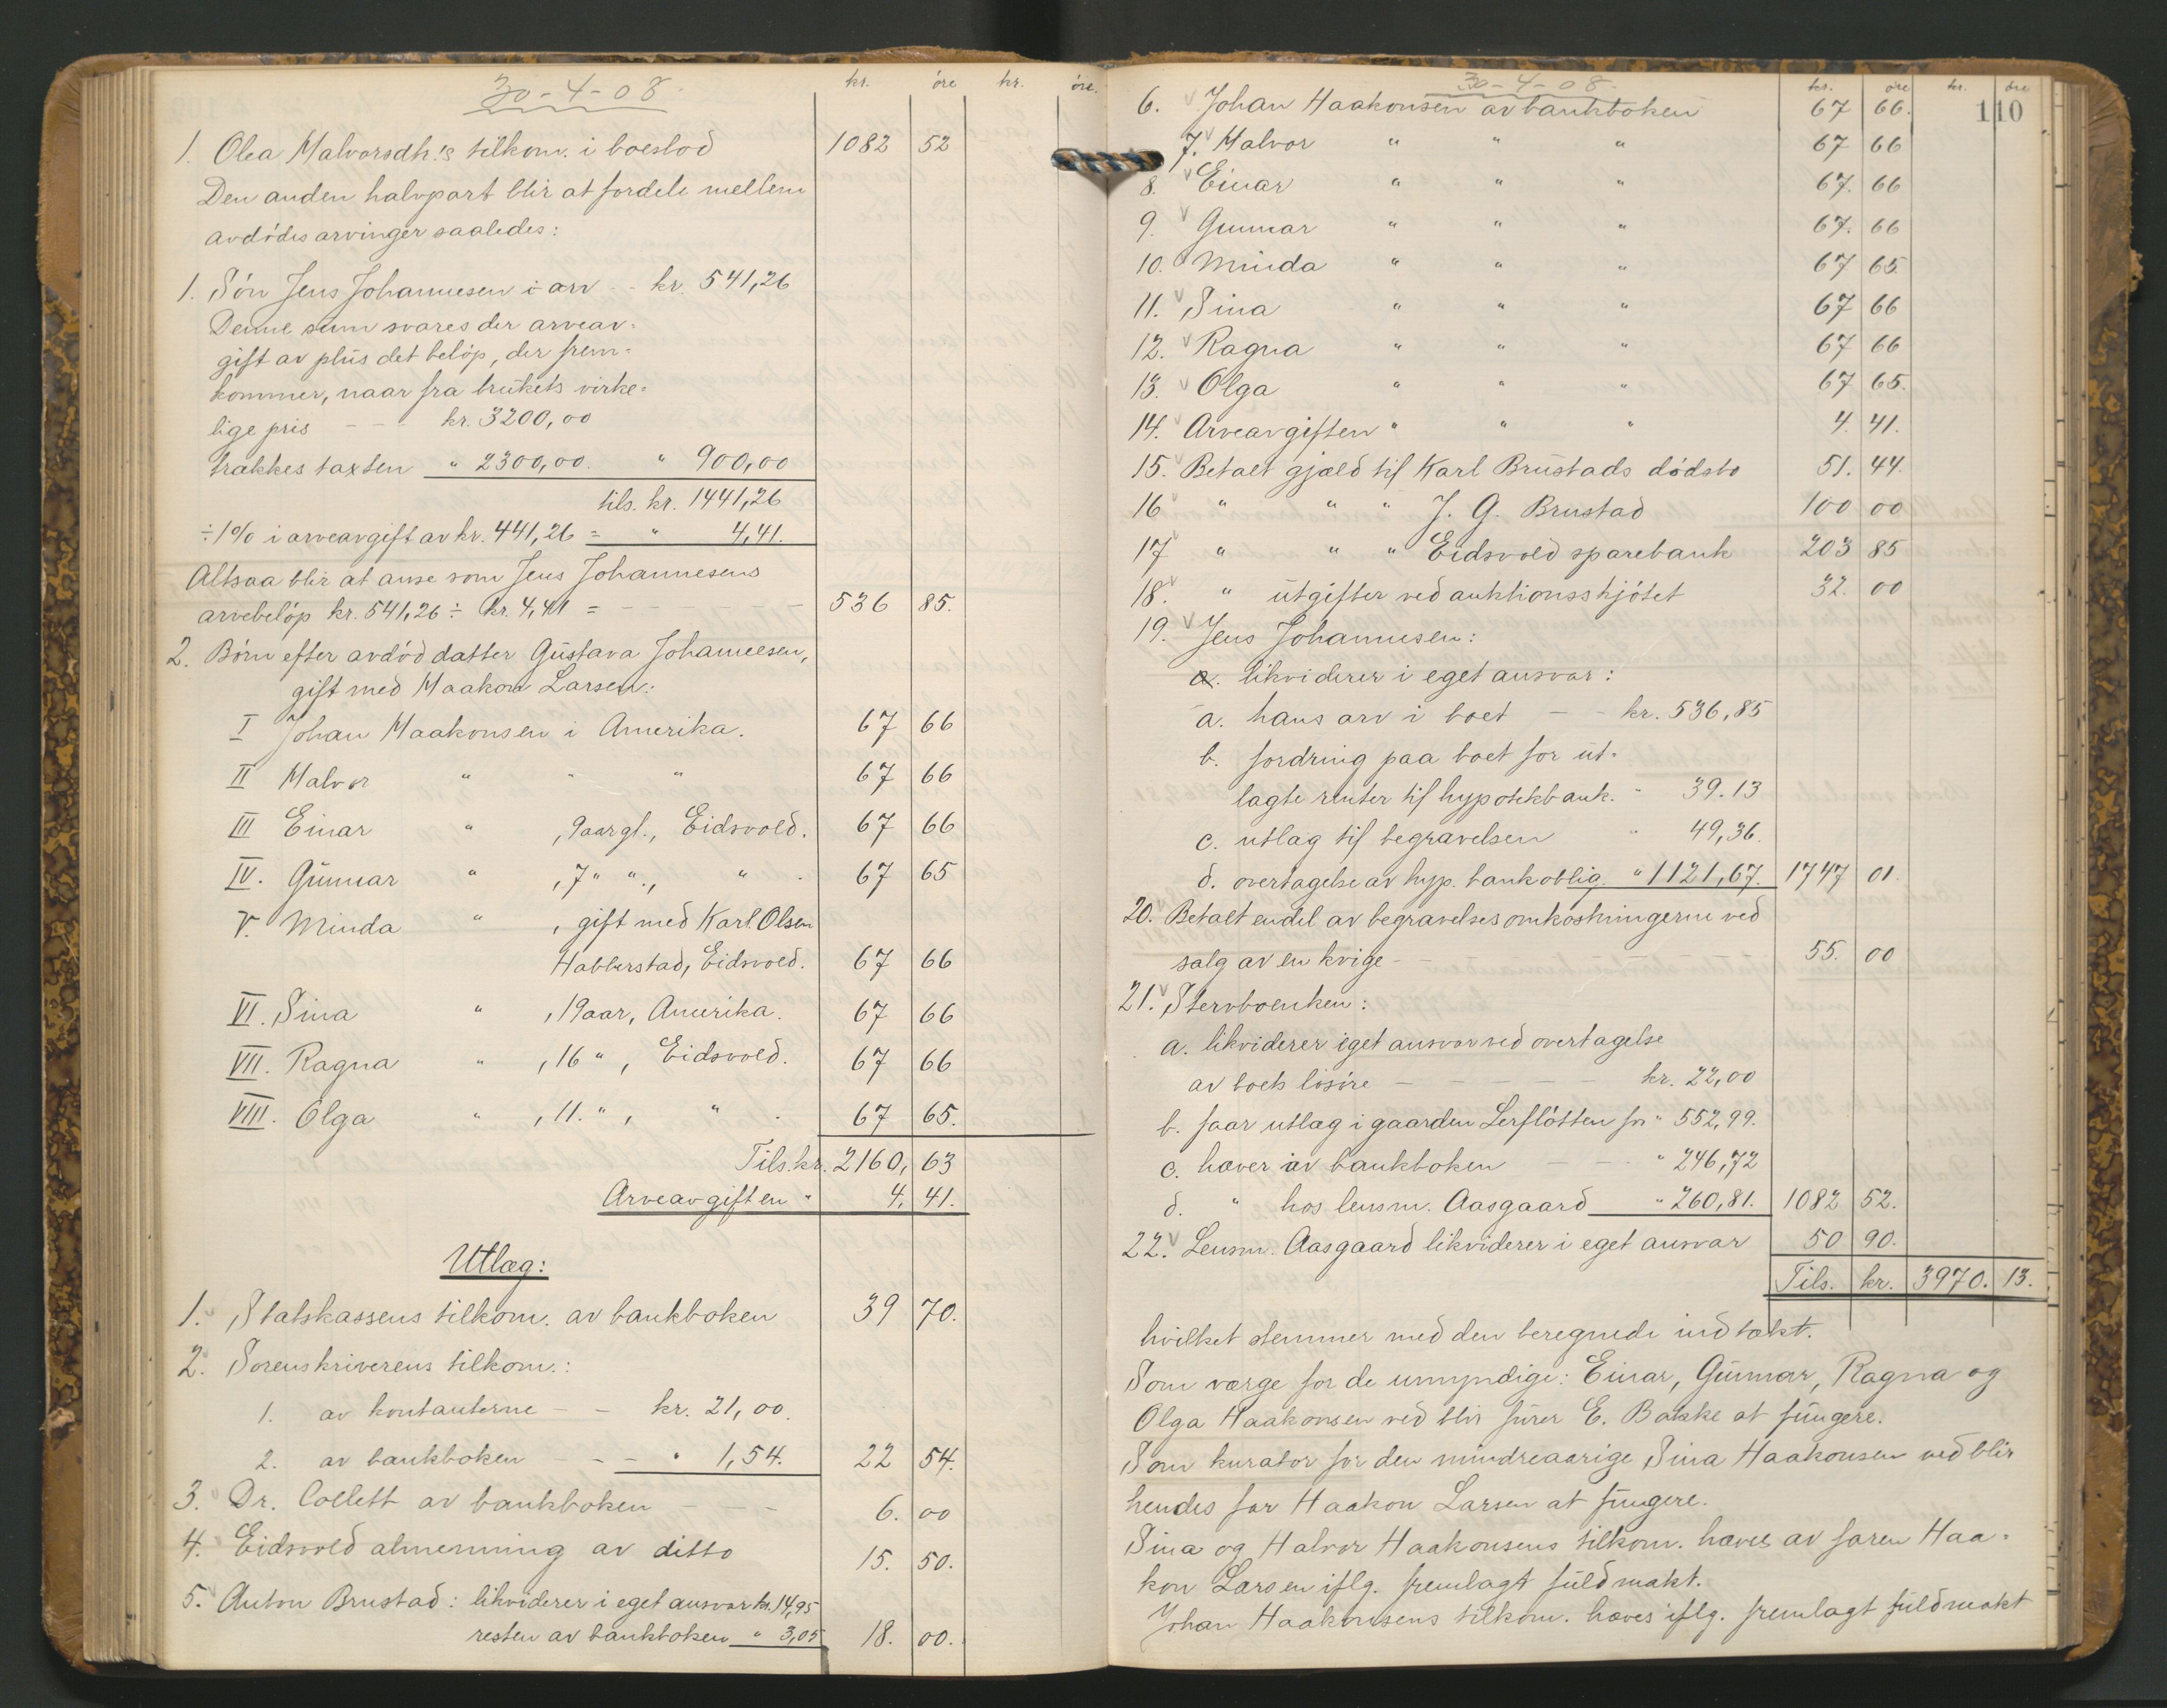 30-4-08.
kr. øre kr. øre.
1. Olea Halvorsdtr.'s tilkom. i boeslod 1082 52
Den anden halvpart blir at fordele mellem
avdødes arvinger saaledes:
1. Søn Jens Johannesen i arv - - kr. 541,26
Denne sum svares der arveav=
gift av plus det beløp, der frem=
kommer, naar fra brukets virke=
lige pris - - - kr. 3200,00
trækkes taxten " 2300,00. " 900,00
tils. kr. 1441,26
÷ 1% i arveavgift av kr. 441,26 = " 4,41.
Altsaa blir at anse som Jens Johannesens
arvebeløp kr. 541,26 ÷ kr. 4,41 = - - - - - - 536 85.
2. Børn efter avdød datter Gustava Johannesen,
gift med Haakon Larsen:
I Johan Haakonsen i Amerika. 67 66
II Halvor " " " 67 66
III Einar " , 9 aar gl., Eidsvold. 67 66
IV. Gunnar " , 7 " "., " . 67 65
V. Minda " , gift med Karl Olsen
Habberstad, Eidsvold. 67 66
VI. Sina " , 19 aar, Amerika. 67 66
VII. Ragna " , 16 " , Eidsvold. 67 66
VIII. Olga " , 11. " , " . 67 65.
Tils. kr. 2160, 63
Arveavgiften " 4, 41.
Utlæg:
1. Statskassens tilkom. av bankboken 39 70.
2. Sorenskriverens tilkom.:
1. av kontanterne - - kr. 21,00.
2. av bankboken - - - " 1,54. 22 54.
3. Dr. Collett av bankboken - - - 6. 00
4. Eidsvold almenning av ditto 15. 50.
5. Anton Brustad: likviderer i eget ansvar kr. 14,95
resten av bankboken " 3,05 18. 00.
30-4-08.
kr. øre kr. øre
110
6. Johan Haakonsen av bankboken 67 66.
7. Halvor " " " 67 66
8. Einar " " " 67. 66
9. Gunnar " " " 67. 66
10. Minda " " " 67 65.
11. Sina " " " 67 66
12. Ragna " " " 67 66
13. Olga " " " 67 65.
14. Arveavgiften " " " 4. 41.
15. Betalt gjæld til Karl Brustads dødsbo 51. 44.
16 " " " J. G. Brustad 100 00
17 " " " Eidsvold sparebank 203 85
18. " utgifter ved auktionsskjøtet 32. 00
19. Jens Johannesen:
a. likviderer i eget ansvar:
a. hans arv i boet - - kr. 536,85
b. fordring paa boet for ut=
lagte renter til hypotekbank. " 39.13
c. utlag til begravelsen " 49,36.
d. overtagelse av hyp. bankoblig. " 1121,67. 1747 01.
20. Betalt endel av begravelsesomkostningerne ved
salg av en kvige - - - - - - - - 55. 00
21. Stervboenken:
a. likviderer i eget ansvar ved overtagelse
av boets løsøre - - - - - kr. 22,00
b. faar utlæg i gaarden Lerfløtten for " 552,99.
c. hæver av bankboken - - - " 246,72
d. " hos lensm. Aasgaard " 260,81. 1082 52.
22. Lensm. Aasgaard likviderer i eget ansvar 50 90.
Tils. kr. 3970. 13.
hvilket stemmer med den beregnede indtækt.
Som værge for de umyndige: Einar, Gunnar, Ragna og
Olga Haakonsen ved blir furer E. Bakke at fungere.
Som kurator for den mindreaarige Sina Haakonsen ved blir
hendes far Haakon Larsen at fungere.
Sina og Halvor Haakonsens tilkom. hæves av faren Haa=
kon Larsen iflg. fremlagt fuldmakt.
Johan Haakonsens tilkom. hæves iflg. fremlagt fuldmakt